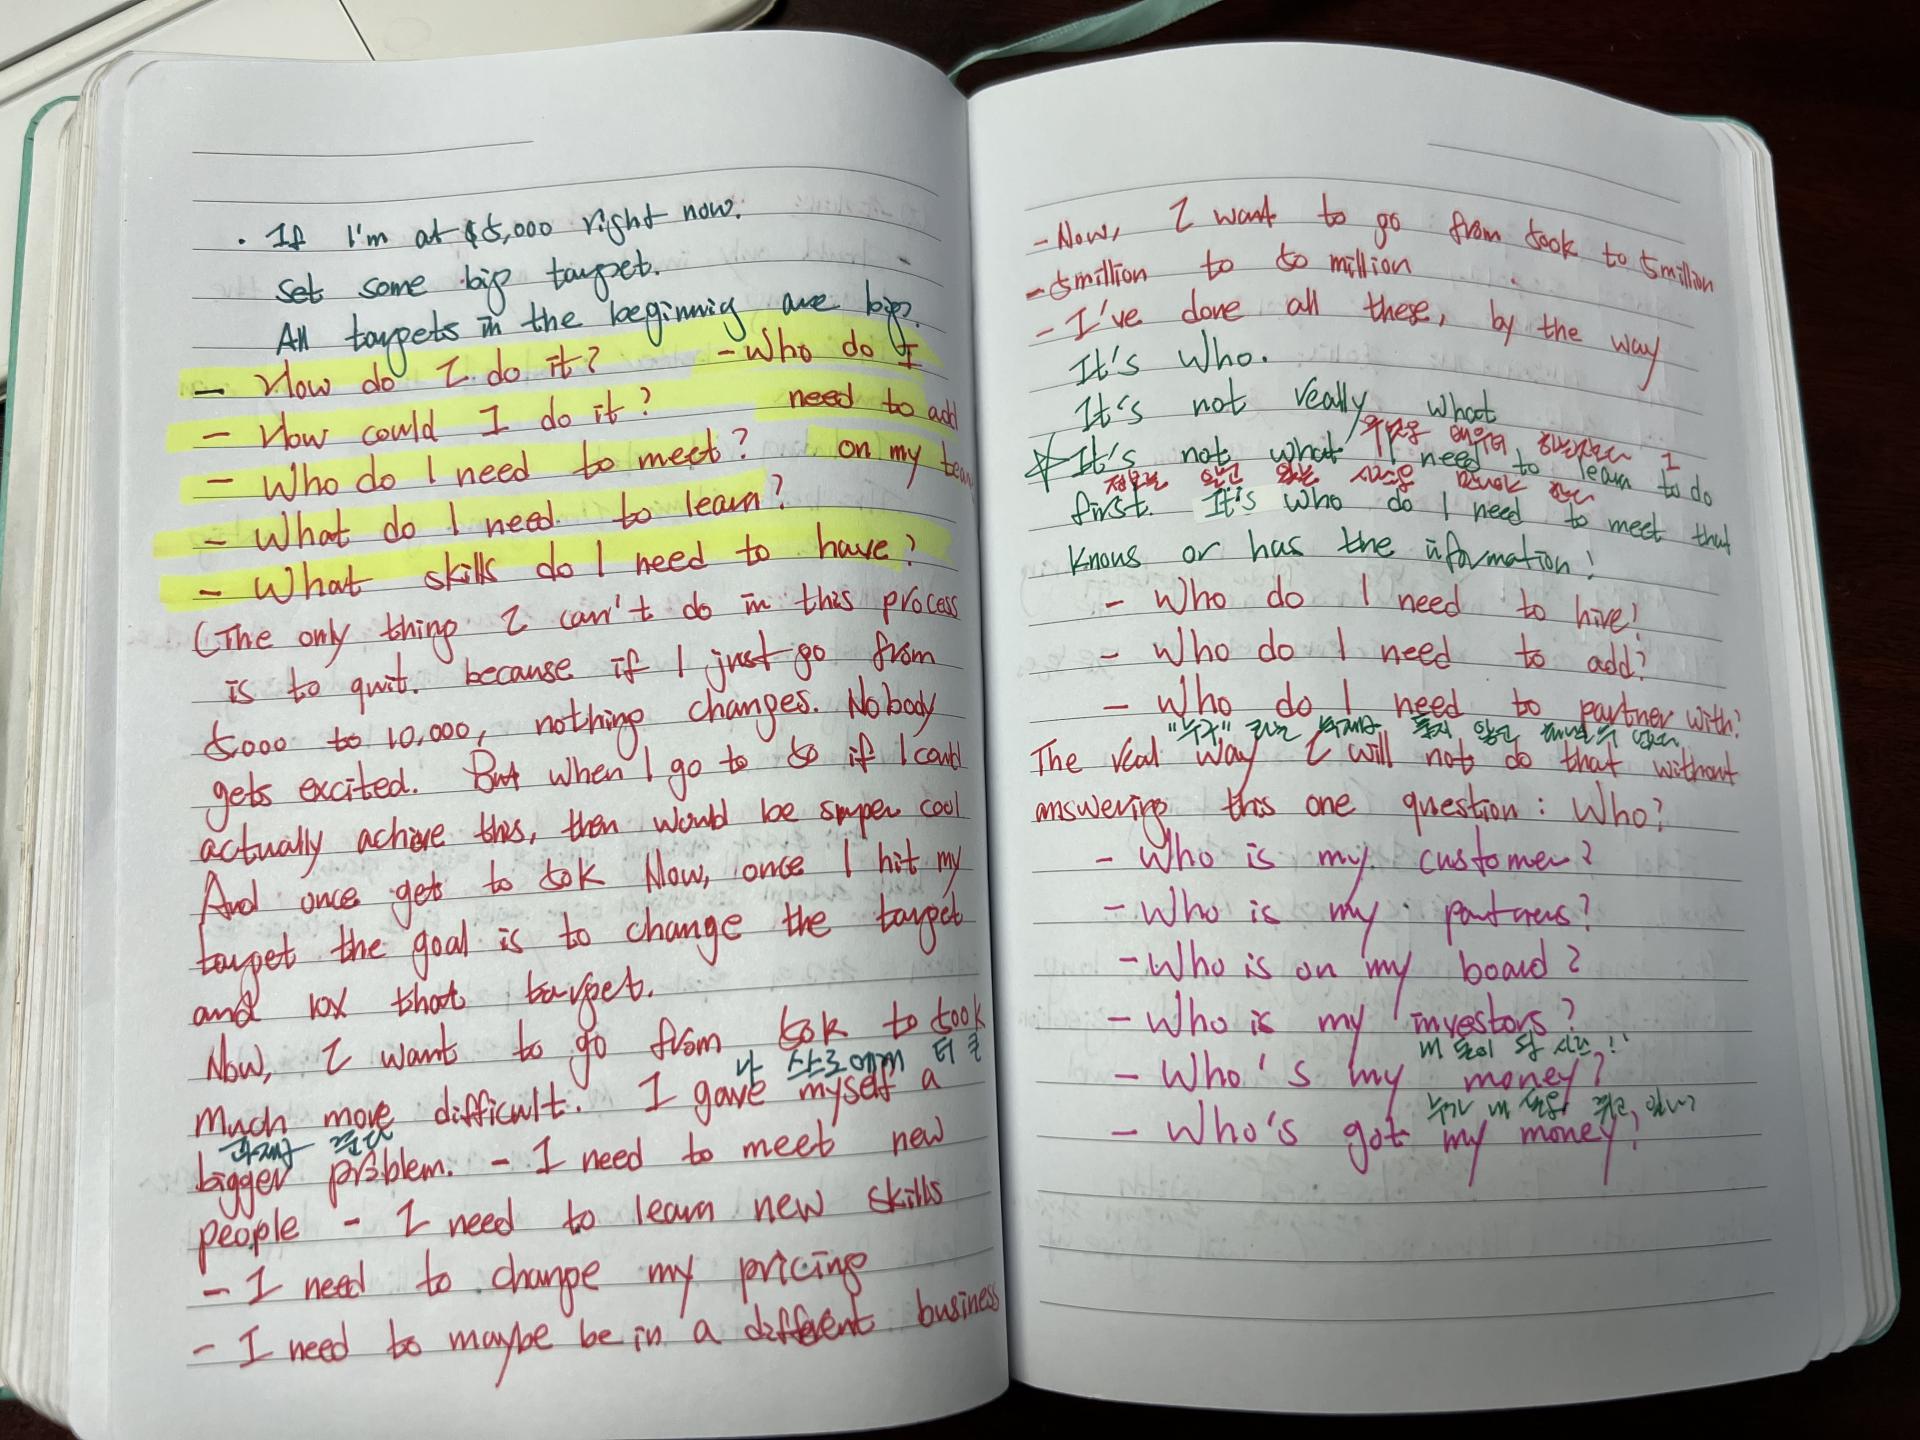 · If I'm at $5,000 right now.
set some big target.
All targets in the beginnig are big.
- How do I do it?
- How could I do it?
- Who do I need to meet?
- What do I need to learn?
- What skills do I need to have?
- Who do I
need to add
on my team
(The only thing I can't do in this process
is to quit. because if I just go from
5,000 to 10,000, nothing changes. Nobody
gets excited. But when I go to 50 if I could
actually achieve this, then would be super cool
And once get to 50k Now, once I hit my
target the goal is to change the target
and 10x that target.
Now, I want to go from 50k to 500k
나 스스로에게 더 큰
Much more difficult. I gave myself a
과제를 준다
bigger problem. - I need to meet new
people - I need to learn new skills
- I need to change my pricing
- I need to maybe be in a different business
- Now, I want to go from 500k to 5million
- 5million to 50 million
- I've done all these, by the way
It's who.
It's not really what
무엇을 배워야 하는지보다
☆ It's not what I need to learn to do
정보를 알고 있는 사람을 만나야 한다
first. It's who do I need to meet that
knows or has the information!
- Who do I need to hire?
- Who do I need to add?
- Who do I need to partner with?
"누구" 라는 풀지 않고
The real way I will not do that without
answering this one question: Who?
- Who is my customer?
- Who is my partners?
- Who is on my board?
- Who is my investors?
내 돈이 될 사람!!
- Who's my money?
누가 내 돈을 쥐고 있나?
- Who's got my money?